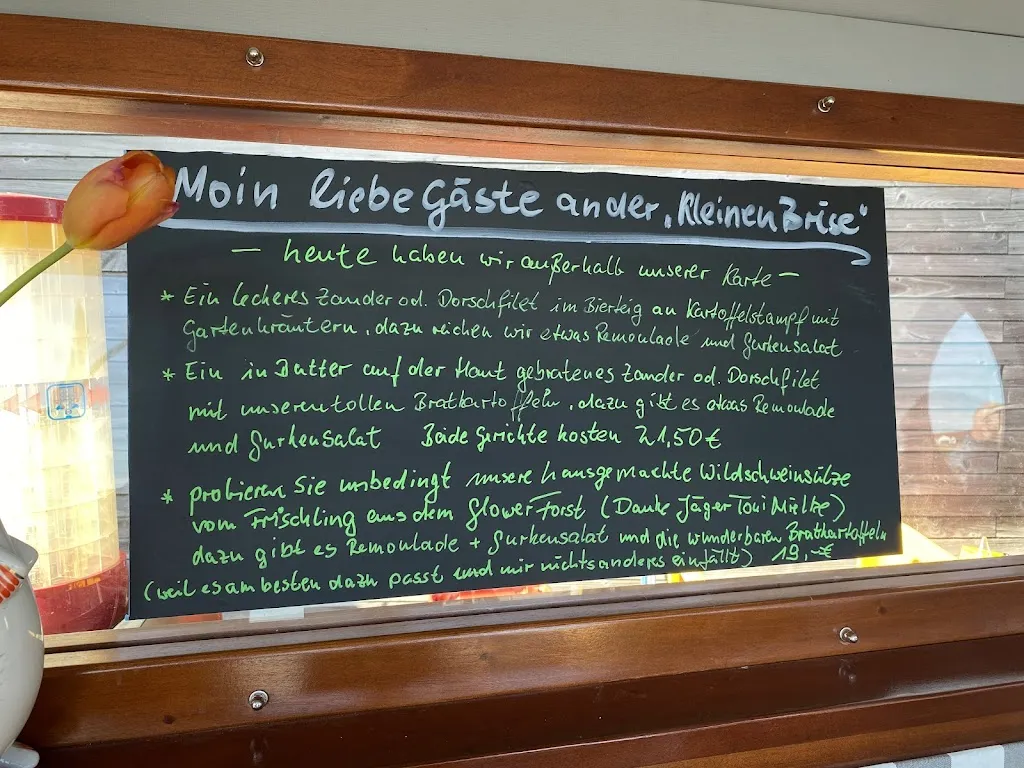 Moin liebe Gäste an der „Kleinen Brise“
— heute haben wir außerhalb unserer Karte —
* Ein leckeres Zander od. Dorschfilet im Bierteig an Kartoffelstampf mit
Gartenkräutern, dazu reichen wir etwas Remoulade und Gurkensalat
* Ein in Butter auf der Haut gebratenes Zander od. Dorschfilet
mit unseren tollen Bratkartoffeln, dazu gibt es etwas Remoulade
und Gurkensalat Beide Gerichte kosten 21,50 €
* probieren Sie unbedingt unsere hausgemachte Wildschweinsülze
vom Frischling aus dem Glower Forst (Danke Jäger Toni Mielke)
dazu gibt es Remoulade + Gurkensalat und die wunderbaren Bratkartoffeln
(weil es am besten dazu passt und mir nichts anderes einfällt) 19,-€